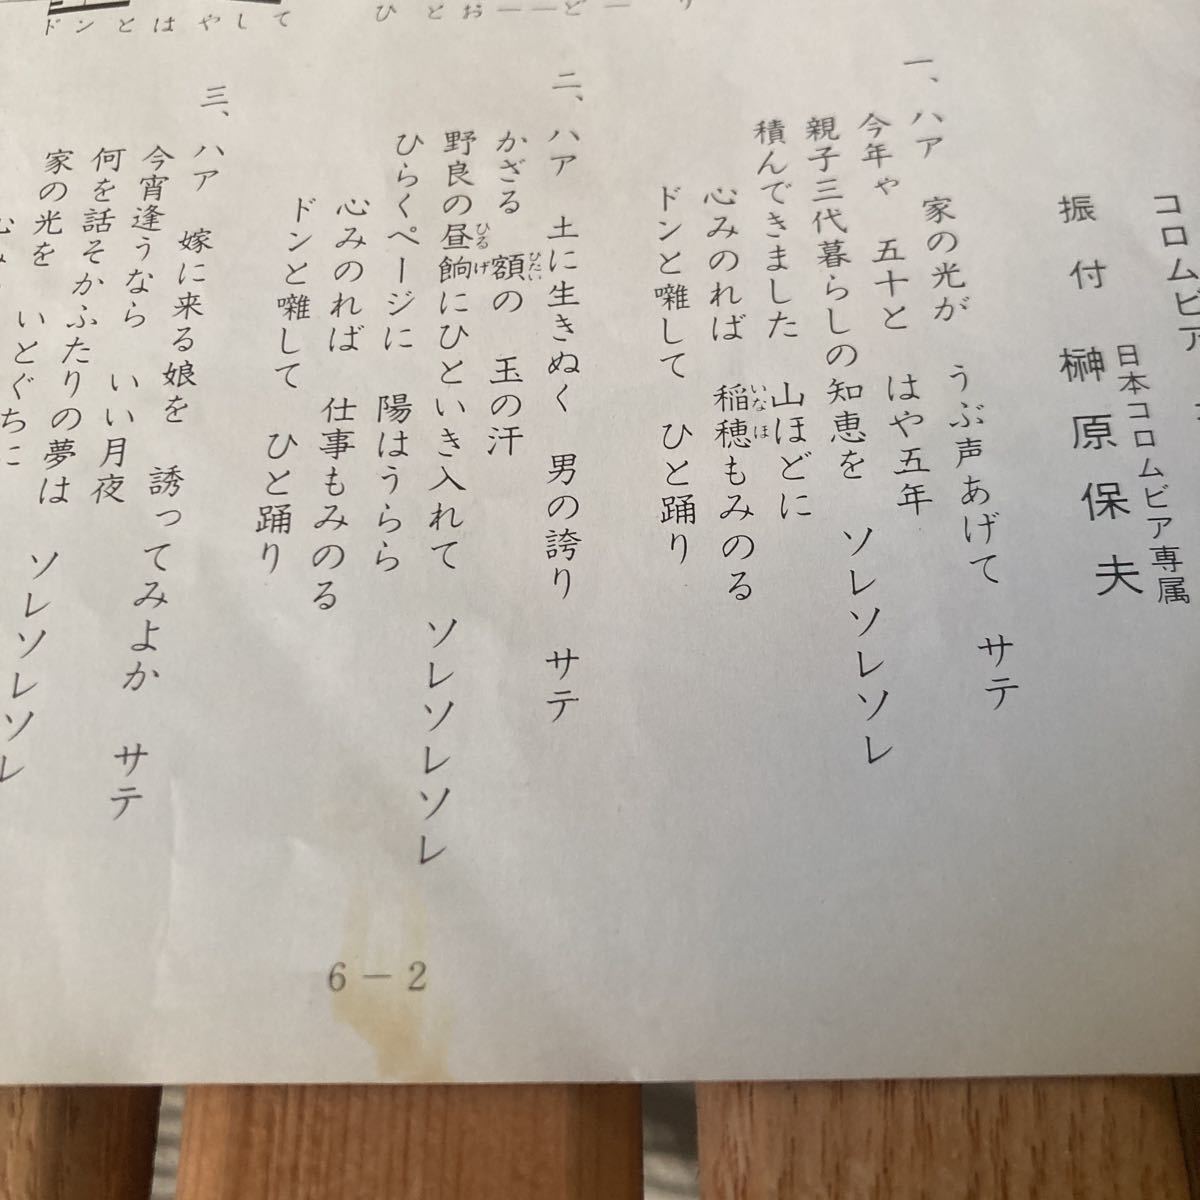 ドンとはやして ひとお――ど―り
コロムビア
振付 榊原保夫
日本コロムビア専属
一、ハア 家の光が うぶ声あげて サテ
今年ゃ 五十と はや五年
親子三代暮らしの知恵を ソレソレソレ
積んできました 山ほどに
心みのれば 稲穂もみのる
ドンと囃して ひと踊り
二、ハア 土に生きぬく 男の誇り サテ
かざる 額の 玉の汗
野良の昼餉にひといき入れて ソレソレソレ
ひらくページに 陽はうらら
心みのれば 仕事もみのる
ドンと囃して ひと踊り
三、ハア 嫁に来る娘を 誘ってみよか サテ
今宵逢うなら いい月夜
何を話そかふたりの夢は ソレソレソレ
家の光を いとぐちに
6－2